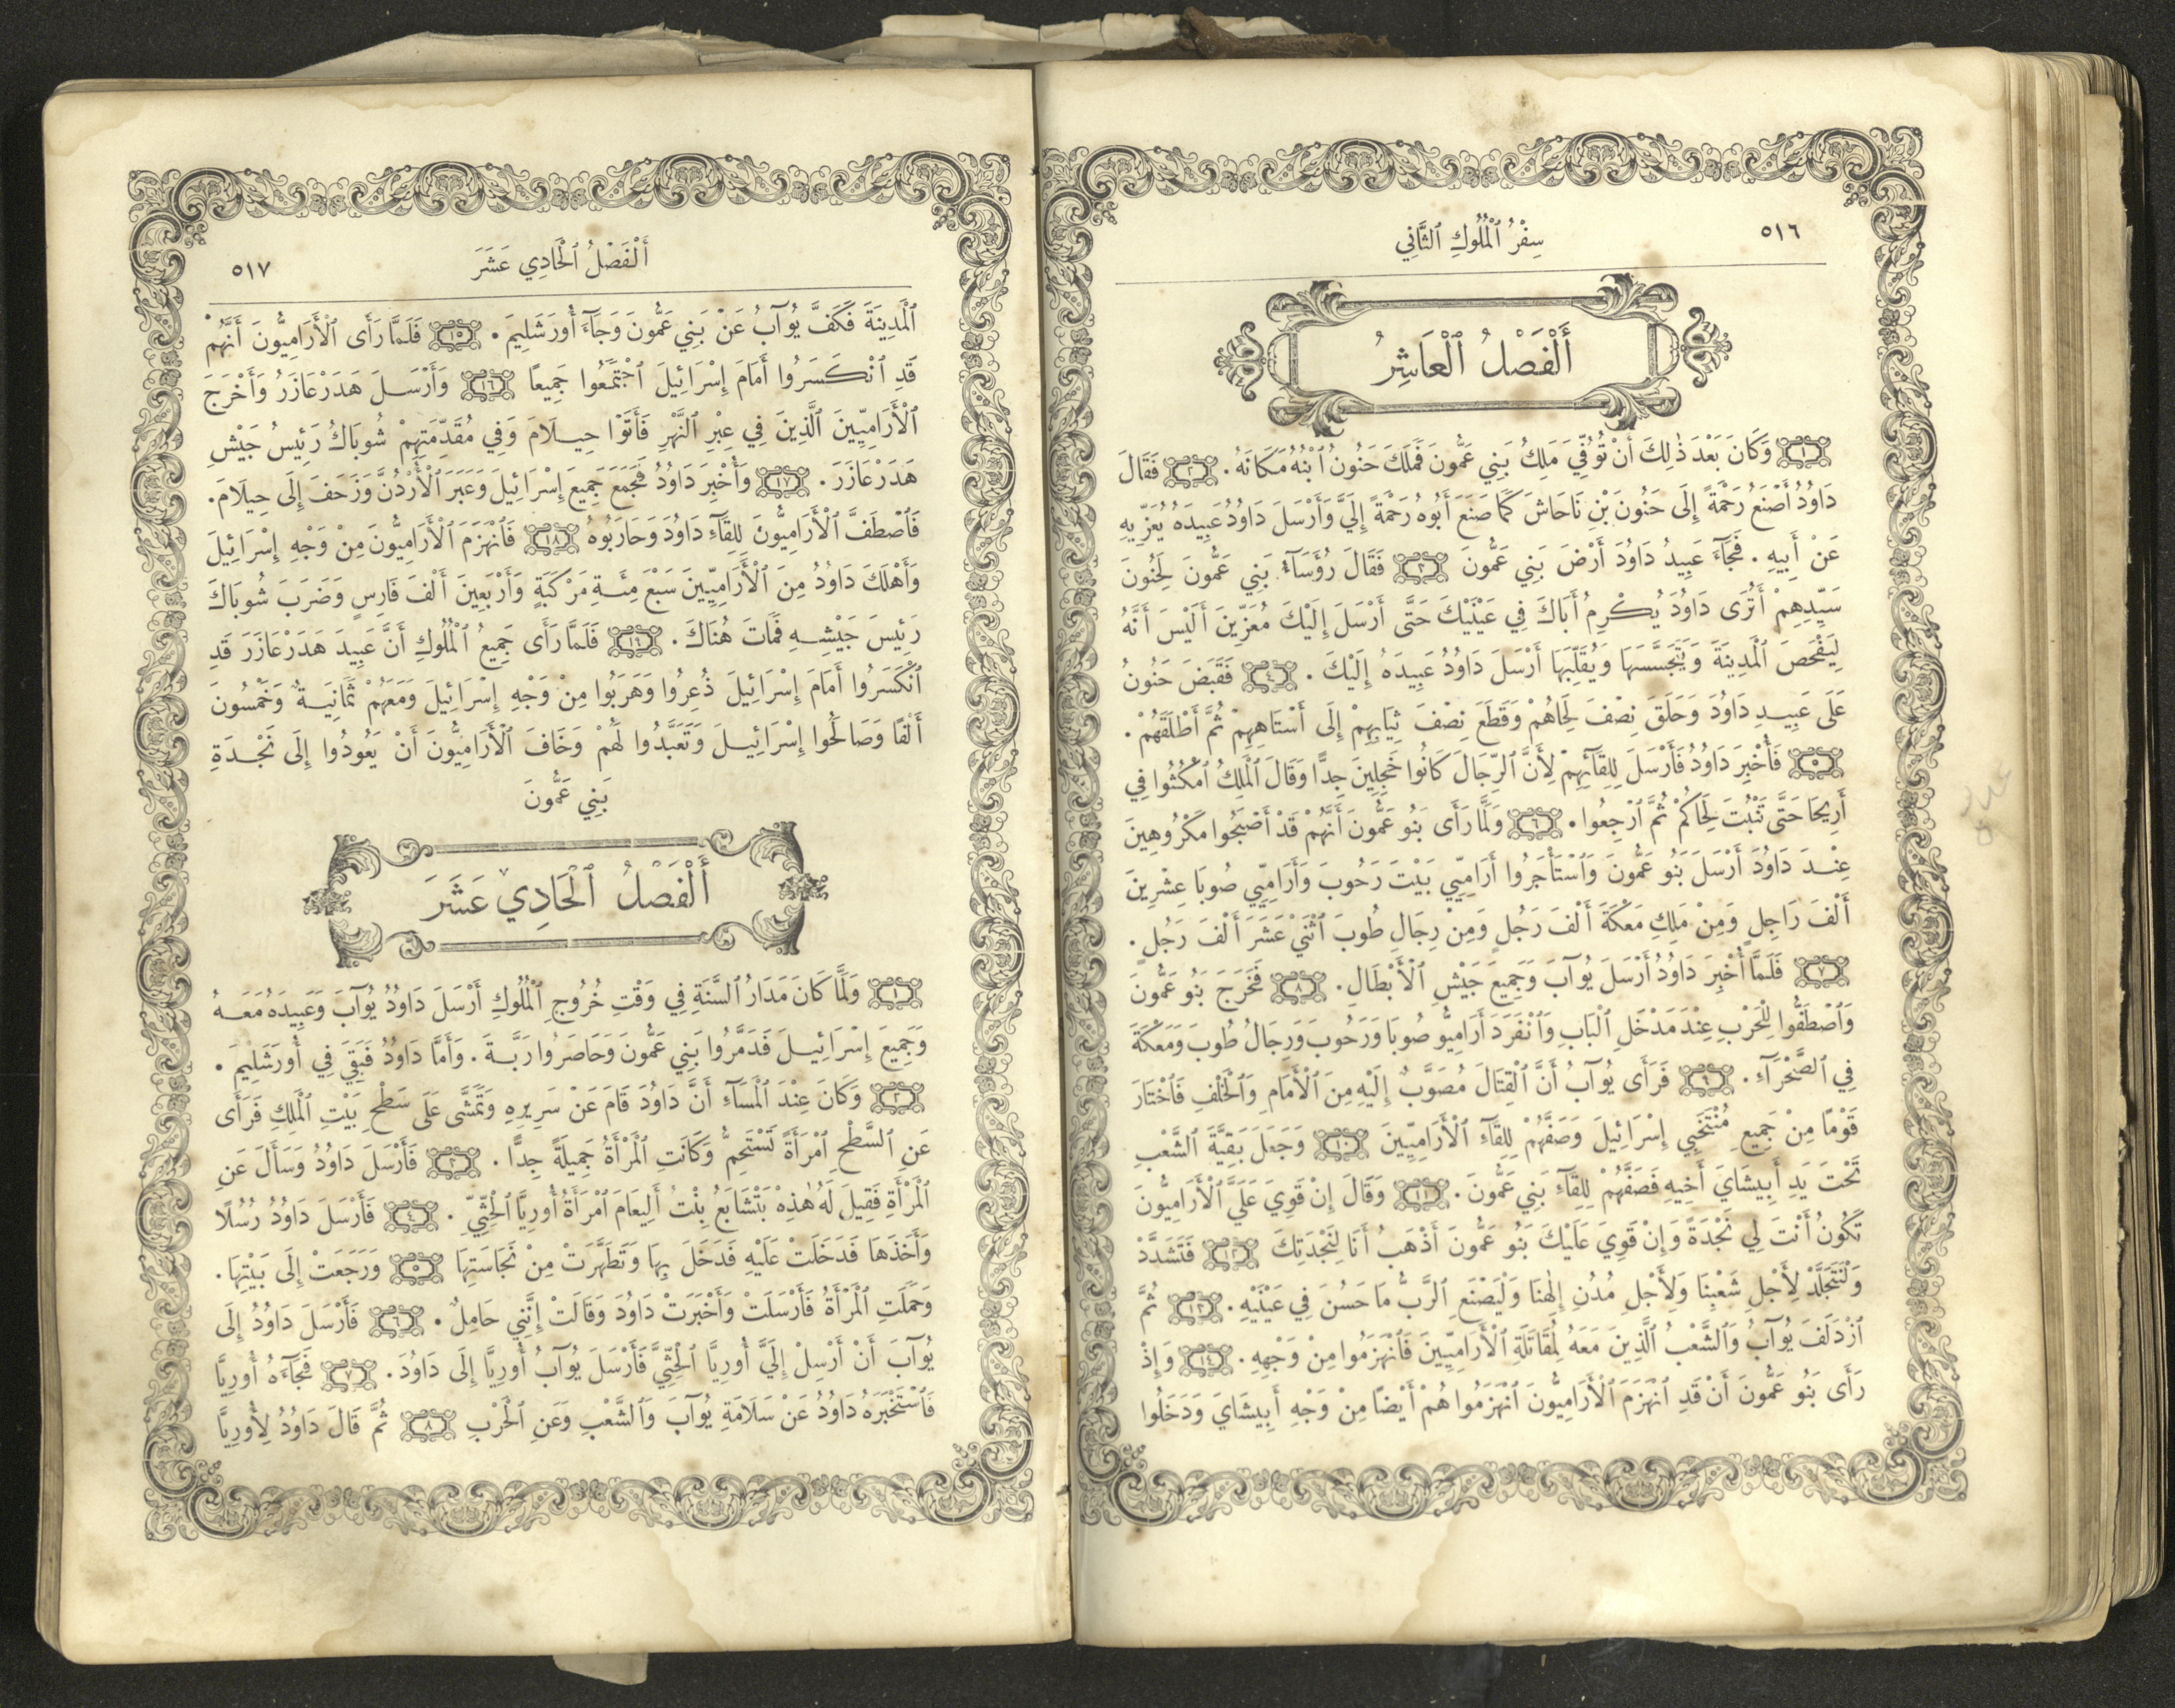 ٥١٦
سِفْرُ ٱلْمُلُوكِ ٱلثَّانِي
أَلْفَصْلُ ٱلْعَاشِرُ
١ وَكَانَ بَعْدَ ذٰلِكَ أَنْ تُوُفِّيَ مَلِكُ بَنِي عَمُّونَ فَمَلَكَ حَنُونُ ٱبْنُهُ مَكَانَهُ. ٢ فَقَالَ
دَاوُدُ أَصْنَعُ رَحْمَةً إِلَى حَنُونَ بْنِ نَاحَاشَ كَمَا صَنَعَ أَبُوهُ رَحْمَةً إِلَيَّ وَأَرْسَلَ دَاوُدُ عَبِيدَهُ يُعَزِّيهِ
عَنْ أَبِيهِ. فَجَآءَ عَبِيدُ دَاوُدَ أَرْضَ بَنِي عَمُّونَ ٣ فَقَالَ رُؤَسَآءُ بَنِي عَمُّونَ لِحَنُونَ
سَيِّدِهِمْ أَتُرَى دَاوُدَ يُكْرِمُ أَبَاكَ فِي عَيْنَيْكَ حَتَّى أَرْسَلَ إِلَيْكَ مُعَزِّينَ أَلَيْسَ أَنَّهُ
لِيَفْحَصَ ٱلْمَدِينَةَ وَيَتَجَسَّسَهَا وَيُقَلِّبَهَا أَرْسَلَ دَاوُدُ عَبِيدَهُ إِلَيْكَ. ٤ فَقَبَضَ حَنُونُ
عَلَى عَبِيدِ دَاوُدَ وَحَلَقَ نِصْفَ لِحَاهُمْ وَقَطَعَ نِصْفَ ثِيَابِهِمْ إِلَى أَسْتَاهِهِمْ ثُمَّ أَطْلَقَهُمْ.
٥ فَأُخْبِرَ دَاوُدُ فَأَرْسَلَ لِلِقَآئِهِمْ لِأَنَّ ٱلرِّجَالَ كَانُوا خَجِلِينَ جِدًّا وَقَالَ ٱلْمَلِكُ ٱمْكُثُوا فِي
أَرِيحَا حَتَّى تَنْبُتَ لِحَاكُمْ ثُمَّ ٱرْجِعُوا. ٦ وَلَمَّا رَأَى بَنُو عَمُّونَ أَنَّهُمْ قَدْ أَصْبَحُوا مَكْرُوهِينَ
عِنْدَ دَاوُدَ أَرْسَلَ بَنُو عَمُّونَ وَٱسْتَأْجَرُوا أَرَامِيِّي بَيْتَ رَحُوبَ وَأَرَامِيِّي صُوبَا عِشْرِينَ
أَلْفَ رَاجِلٍ وَمِنْ مَلِكِ مَعْكَةَ أَلْفَ رَجُلٍ وَمِنْ رِجَالِ طُوبَ ٱثْنَيْ عَشَرَ أَلْفَ رَجُلٍ.
٧ فَلَمَّا أُخْبِرَ دَاوُدُ أَرْسَلَ يُوآبَ وَجَمِيعَ جَيْشِ ٱلْأَبْطَالِ. ٨ فَخَرَجَ بَنُو عَمُّونَ
وَٱصْطَفُّوا لِلْحَرْبِ عِنْدَ مَدْخَلِ ٱلْبَابِ وَٱنْفَرَدَ أَرَامِيُّو صُوبَا وَرَحُوبَ وَرِجَالُ طُوبَ وَمَعْكَةَ
فِي ٱلصَّحْرَآءِ. ٩ فَرَأَى يُوآبُ أَنَّ ٱلْقِتَالَ مُصَوَّبٌ إِلَيْهِ مِنَ ٱلْأَمَامِ وَٱلْخَلْفِ فَٱخْتَارَ
قَوْمًا مِنْ جَمِيعِ مُنْتَخَبِي إِسْرَائِيلَ وَصَفَّهُمْ لِلِقَآءِ ٱلْأَرَامِيِّينَ ١٠ وَجَعَلَ بَقِيَّةَ ٱلشَّعْبِ
تَحْتَ يَدِ أَبِيشَايَ أَخِيهِ فَصَفَّهُمْ لِلِقَآءِ بَنِي عَمُّونَ. ١١ وَقَالَ إِنْ قَوِيَ عَلَيَّ ٱلْأَرَامِيُّونَ
تَكُونُ أَنْتَ لِي نَجْدَةً وَإِنْ قَوِيَ عَلَيْكَ بَنُو عَمُّونَ أَذْهَبُ أَنَا لِنَجْدَتِكَ ١٢ فَتَشَدَّدْ
وَلْنَتَجَلَّدْ لِأَجْلِ شَعْبِنَا وَلِأَجْلِ مُدُنِ إِلٰهِنَا وَلْيَصْنَعِ ٱلرَّبُّ مَا حَسُنَ فِي عَيْنَيْهِ. ١٣ ثُمَّ
ٱزْدَلَفَ يُوآبُ وَٱلشَّعْبُ ٱلَّذِينَ مَعَهُ لِمُقَاتَلَةِ ٱلْأَرَامِيِّينَ فَٱنْهَزَمُوا مِنْ وَجْهِهِ. ١٤ وَإِذْ
رَأَى بَنُو عَمُّونَ أَنْ قَدِ ٱنْهَزَمَ ٱلْأَرَامِيُّونَ ٱنْهَزَمُوا هُمْ أَيْضًا مِنْ وَجْهِ أَبِيشَايَ وَدَخَلُوا
أَلْفَصْلُ ٱلْحَادِي عَشَرَ
٥١٧
ٱلْمَدِينَةَ فَكَفَّ يُوآبُ عَنْ بَنِي عَمُّونَ وَجَآءَ أُورَشَلِيمَ. ١٥ فَلَمَّا رَأَى ٱلْأَرَامِيُّونَ أَنَّهُمْ
قَدِ ٱنْكَسَرُوا أَمَامَ إِسْرَائِيلَ ٱجْتَمَعُوا جَمِيعًا ١٦ وَأَرْسَلَ هَدَرْعَازَرُ وَأَخْرَجَ
ٱلْأَرَامِيِّينَ ٱلَّذِينَ فِي عِبْرِ ٱلنَّهْرِ فَأَتَوْا حِيلَامَ وَفِي مُقَدِّمَتِهِمْ شُوبَاكُ رَئِيسُ جَيْشِ
هَدَرْعَازَرَ. ١٧ وَأُخْبِرَ دَاوُدُ فَجَمَعَ جَمِيعَ إِسْرَائِيلَ وَعَبَرَ ٱلْأُرْدُنَّ وَزَحَفَ إِلَى حِيلَامَ.
فَٱصْطَفَّ ٱلْأَرَامِيُّونَ لِلِقَآءِ دَاوُدَ وَحَارَبُوهُ ١٨ فَٱنْهَزَمَ ٱلْأَرَامِيُّونَ مِنْ وَجْهِ إِسْرَائِيلَ
وَأَهْلَكَ دَاوُدُ مِنَ ٱلْأَرَامِيِّينَ سَبْعَ مِئَةِ مَرْكَبَةٍ وَأَرْبَعِينَ أَلْفَ فَارِسٍ وَضَرَبَ شُوبَاكَ
رَئِيسَ جَيْشِهِ فَمَاتَ هُنَاكَ. ١٩ فَلَمَّا رَأَى جَمِيعُ ٱلْمُلُوكِ أَنَّ عَبِيدَ هَدَرْعَازَرَ قَدِ
ٱنْكَسَرُوا أَمَامَ إِسْرَائِيلَ ذُعِرُوا وَهَرَبُوا مِنْ وَجْهِ إِسْرَائِيلَ وَمَعَهُمْ ثَمَانِيَةٌ وَخَمْسُونَ
أَلْفًا وَصَالَحُوا إِسْرَائِيلَ وَتَعَبَّدُوا لَهُمْ وَخَافَ ٱلْأَرَامِيُّونَ أَنْ يَعُودُوا إِلَى نَجْدَةِ
بَنِي عَمُّونَ
أَلْفَصْلُ ٱلْحَادِي عَشَرَ
١ وَلَمَّا كَانَ مَدَارُ ٱلسَّنَةِ فِي وَقْتِ خُرُوجِ ٱلْمُلُوكِ أَرْسَلَ دَاوُدُ يُوآبَ وَعَبِيدَهُ مَعَهُ
وَجَمِيعَ إِسْرَائِيلَ فَدَمَّرُوا بَنِي عَمُّونَ وَحَاصَرُوا رَبَّةَ. وَأَمَّا دَاوُدُ فَبَقِيَ فِي أُورَشَلِيمَ.
٢ وَكَانَ عِنْدَ ٱلْمَسَآءِ أَنَّ دَاوُدَ قَامَ عَنْ سَرِيرِهِ وَتَمَشَّى عَلَى سَطْحِ بَيْتِ ٱلْمَلِكِ فَرَأَى
عَنِ ٱلسَّطْحِ ٱمْرَأَةً تَسْتَحِمُّ وَكَانَتِ ٱلْمَرْأَةُ جَمِيلَةً جِدًّا. ٣ فَأَرْسَلَ دَاوُدُ وَسَأَلَ عَنِ
ٱلْمَرْأَةِ فَقِيلَ لَهُ هٰذِهْ بَتْشَابَعُ بِنْتُ أَلِيعَامَ ٱمْرَأَةُ أُورِيَّا ٱلْحِثِّيِّ. ٤ فَأَرْسَلَ دَاوُدُ رُسُلًا
وَأَخَذَهَا فَدَخَلَتْ عَلَيْهِ فَدَخَلَ بِهَا وَتَطَهَّرَتْ مِنْ نَجَاسَتِهَا ٥ وَرَجَعَتْ إِلَى بَيْتِهَا.
وَحَمَلَتِ ٱلْمَرْأَةُ فَأَرْسَلَتْ وَأَخْبَرَتْ دَاوُدَ وَقَالَتْ إِنَّنِي حَامِلٌ. ٦ فَأَرْسَلَ دَاوُدُ إِلَى
يُوآبَ أَنْ أَرْسِلْ إِلَيَّ أُورِيَّا ٱلْحِثِّيَّ فَأَرْسَلَ يُوآبُ أُورِيَّا إِلَى دَاوُدَ. ٧ فَجَآءَهُ أُورِيَّا
فَٱسْتَخْبَرَهُ دَاوُدُ عَنْ سَلَامَةِ يُوآبَ وَٱلشَّعْبِ وَعَنِ ٱلْحَرْبِ ٨ ثُمَّ قَالَ دَاوُدُ لِأُورِيَّا